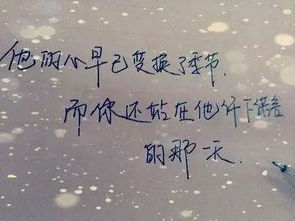 他的心早已变换了季节，
而你还站在他许下诺言
的那一天.